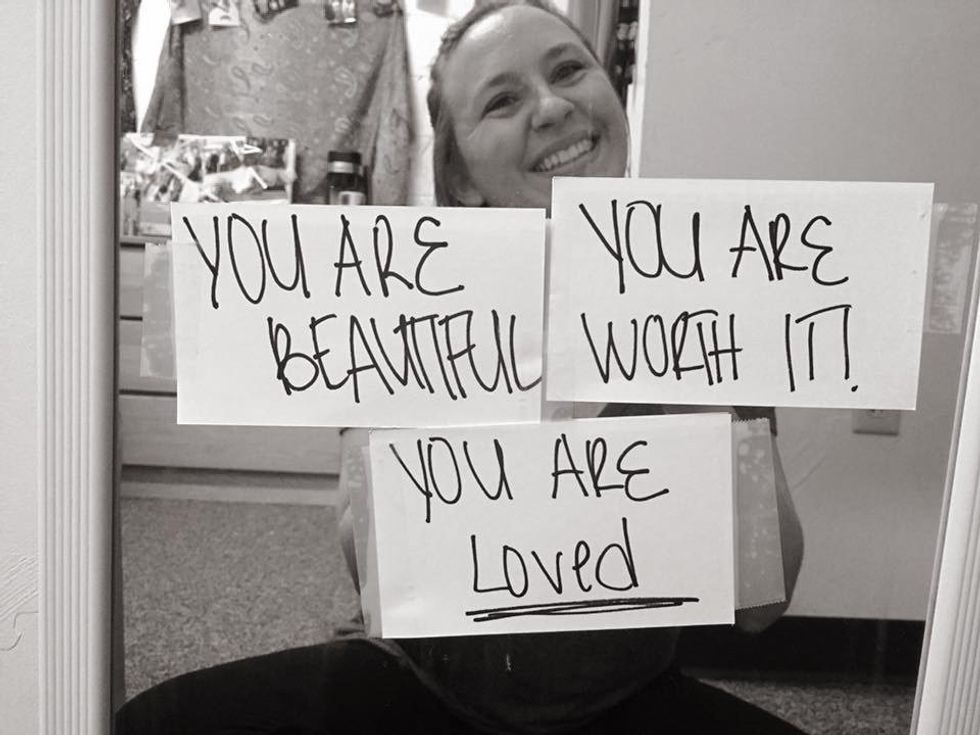 YOU ARE
BEAUTIFUL
YOU ARE
WORTH IT!
YOU ARE
Loved